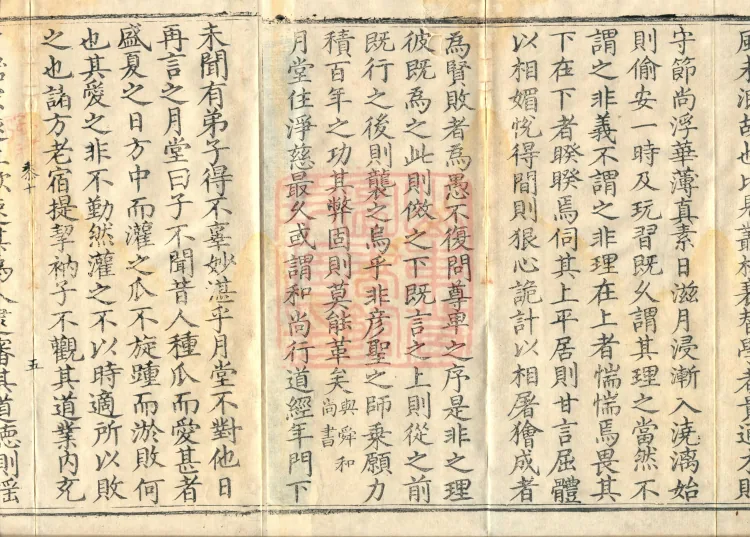 風未泯故也比見叢林衰替學者貴通才賤
守節尚浮華薄真素日滋月浸漸入澆漓始
則偷安一時及玩習既久謂其理之當然不
謂之非義不謂之非理在上者惴惴焉畏其
下在下者睽睽焉伺其上平居則甘言屈體
以相媚悅得間則狠心詭計以相屠獪成者
爲賢敗者爲愚不復問尊卑之序是非之理
彼既爲之此則傚之下既言之上則從之前
既行之後則襲之烏乎非彥聖之師乘願力
積百年之功其弊固則莫能革矣與舜和尚書
月堂住淨慈最久或謂和尚行道經年門下
未聞有弟子得不辜妙湛乎月堂不對他日
再言之月堂曰子不聞昔人種瓜而愛甚者
盛夏之日方中而灌之瓜不旋踵而淤敗何
也其愛之非不勤然灌之不以時適所以敗
之也諸方老宿提挈衲子不觀其道業內充
叅十 五
其爲人逮審其道德則婬